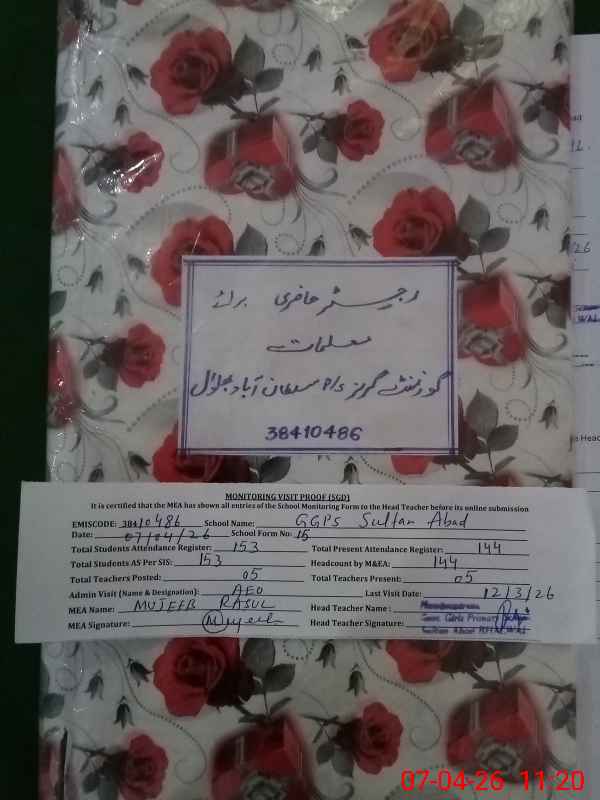 رجسٹر حاضری برائے
معلمات
گورنمنٹ گرلز P/S سلطان آباد بھلوال
38410486
MONITORING VISIT PROOF (SGD)
It is certified that the MEA has shown all entries of the School Monitoring Form to the Head Teacher before its online submission
EMISCODE: 38410486 School Name: GGPS Sultan Abad
Date: 07/04/26 School Form No: 15
Total Students Attendance Register: 153 Total Present Attendance Register: 144
Total Students AS Per SIS: 153 Headcount by M&EA: 144
Total Teachers Posted: 05 Total Teachers Present: 05
Admin Visit (Name & Designation): AEO Last Visit Date: 12/3/26
MEA Name: MUJEEB RASUL Head Teacher Name: Headmistress
MEA Signature: Mujeeb Head Teacher Signature: Govt. Girls Primary
Sultan Abad
07-04-26 11:20